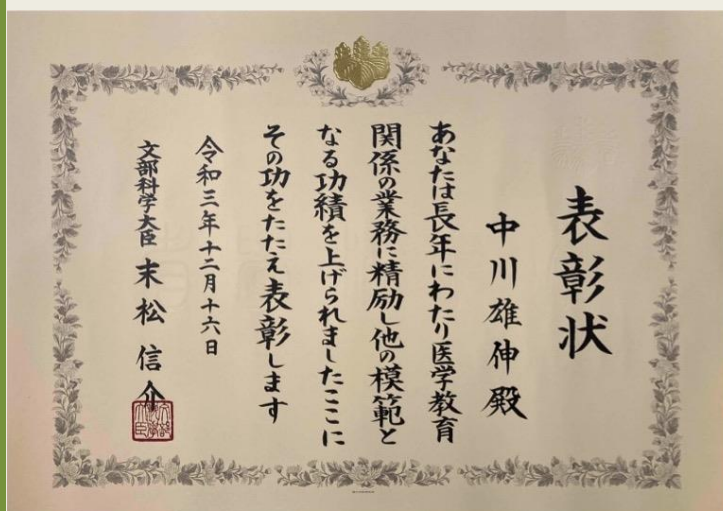 表彰状
中川雄伸殿
あなたは長年にわたり医学教育
関係の業務に精励し他の模範と
なる功績を上げられましたここに
その功をたたえ表彰します
令和三年十二月十六日
文部科学大臣 末松信介